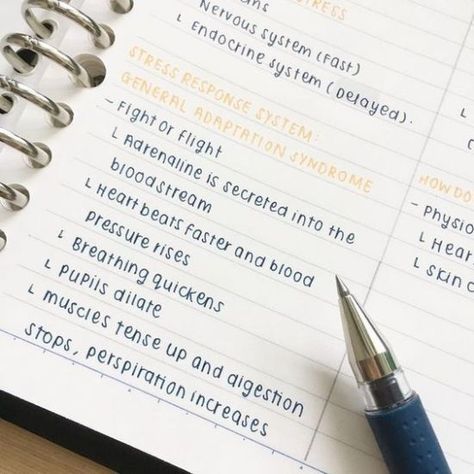 STRESS
Nervous system (Fast)
L Endocrine system (Delayed).
STRESS RESPONSE SYSTEM:
GENERAL ADAPTATION SYNDROME
- Fight or Flight
L Adrenaline is secreted into the
bloodstream
L Heart beats faster and blood
pressure rises
L Breathing quickens
L Pupils dilate
L muscles tense up and digestion
stops, perspiration increases
HOW DO
- Physio
L Hear
L skin c